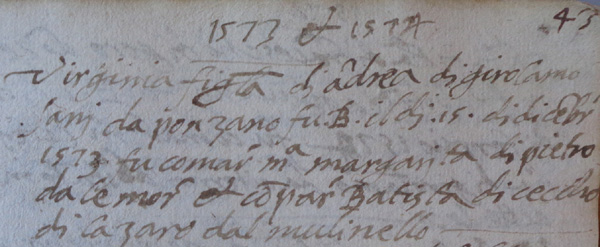 1573 et 1574 43
Virginia figla dj ādrea di girolamo
Sanj da ponzano fu B. il dj .15. di dicēbr
1573 fu comar mᵃ margarita di pietro
da le mor et cōpar Batista di cecho
di lazaro dal mulinello